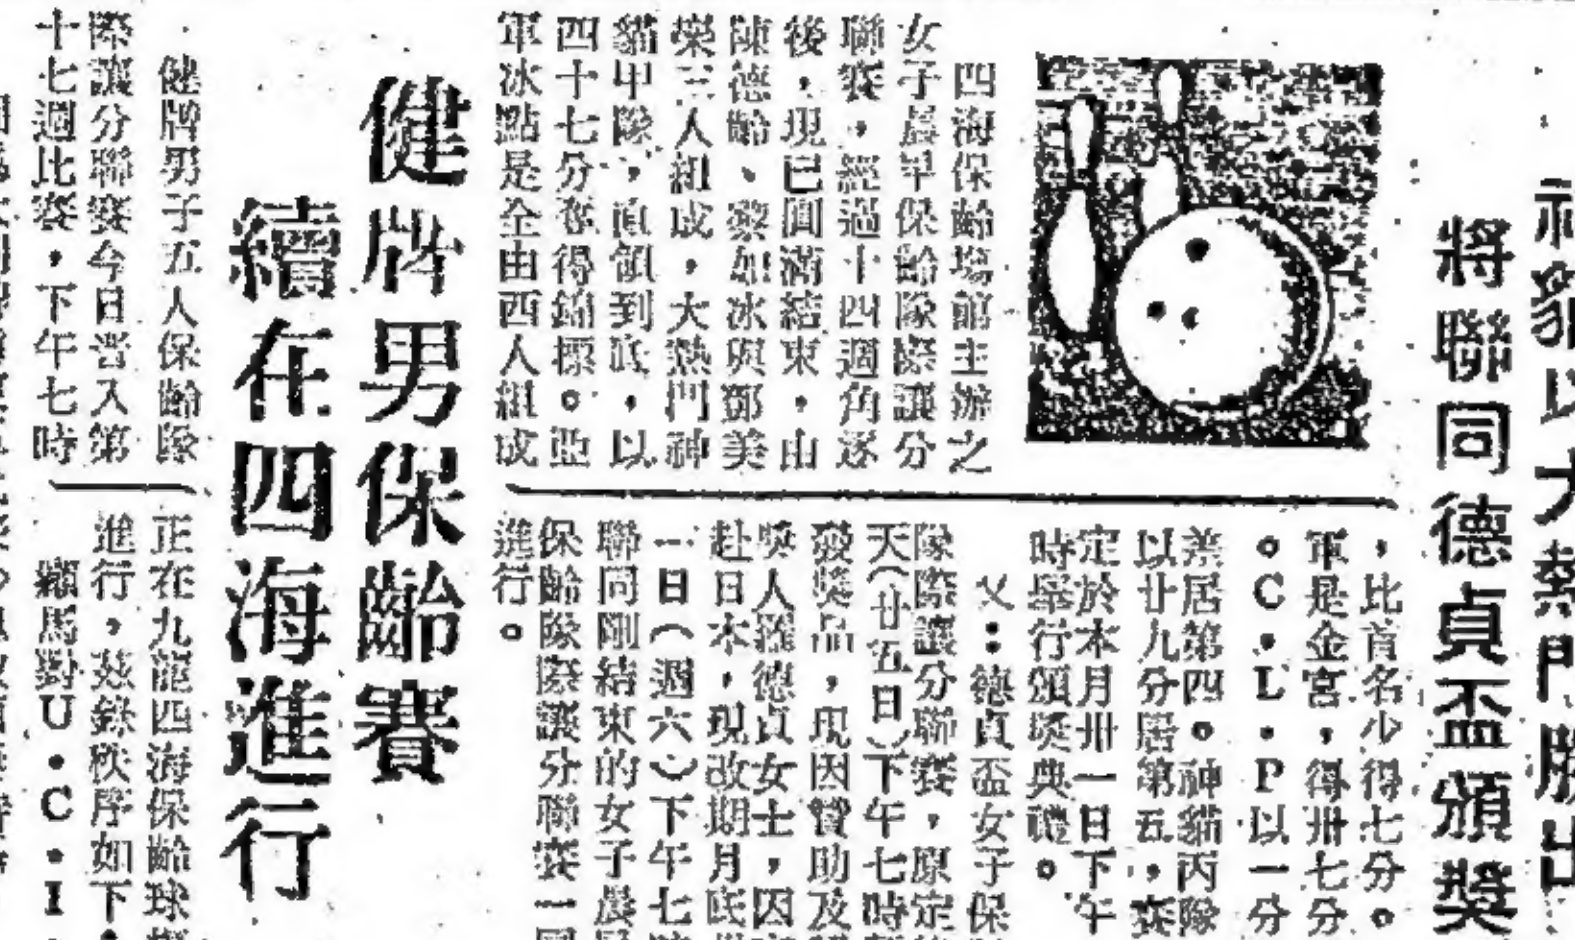 神貓以大熱門勝出
將聯同德貞盃頒獎
四海保齡塲館主辦之
女子晨早保齡隊際讓分
聯賽，經過十四週角逐
後，現已圓滿結束，由
陳德齡、黎如冰與鄧美
榮三人組成，大熱門神
貓甲隊，直領到底，以
四十七分奪得錦標。亞
軍冰點是全由西人組成
，比首名少得七分。
軍是金宮，得卅七分
。C．L．P以一分
居第四。神貓丙隊
以廿九分居第五，賽
定於本月卅一日下午
時舉行頒獎典禮。
又：德貞盃女子保
隊際讓分聯賽，原定
天（廿五日）下午七時
發獎品，現因贊助及
獎人羅德貞女士，因
赴日本，現改期月底
一日（週六）下午七
聯同剛結束的女子晨
保齡隊際讓分聯賽一
進行。
健牌男子保齡賽
續在四海進行
健牌男子五人保齡隊
際讓分聯賽今日晋入第
十七週比賽，下午七時
正在九龍四海保齡球
進行，茲錄秩序如下
馬對U．C．I